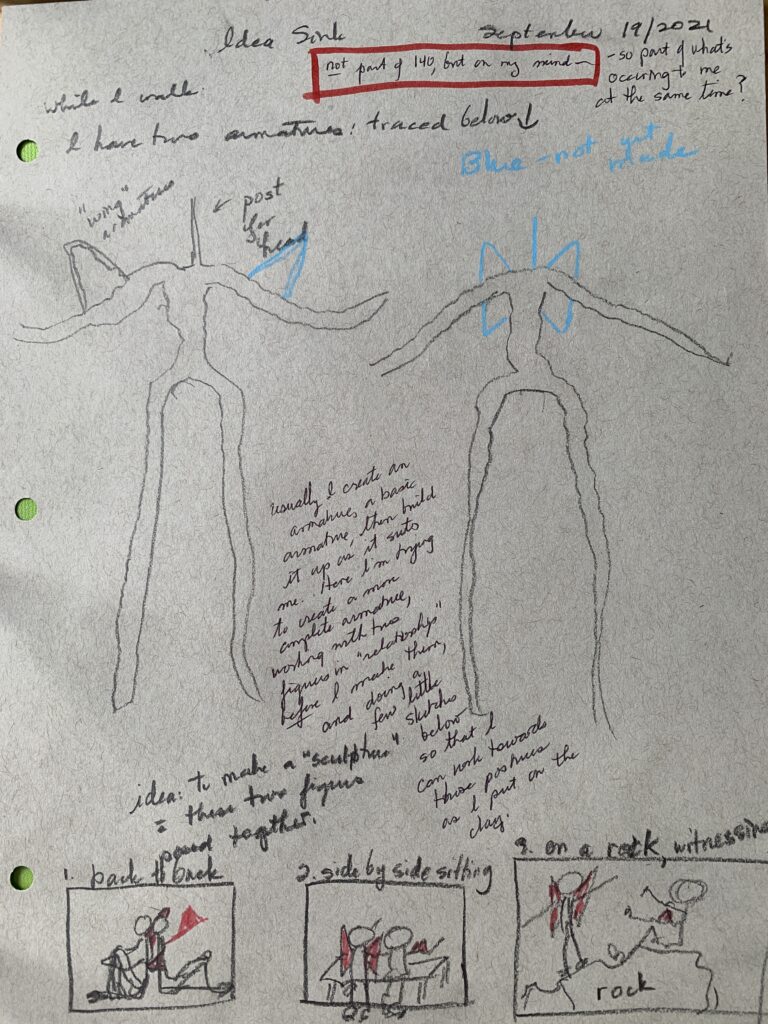 Idea Sink
September 19/2021
not part of 140, but on my mind—
- so part of what's
occuring to me
at the same time?
while I walk:
I have two armatures: traced below ↓
Blue - not yet
made
"wing"
armatures
← post
for
head
usually I create an
armature, a basic
armature, then build
it up as it suits
me. Here I'm trying
to create a more
complete armature,
working with two
figures in "relationship"
before I make them,
and doing a
few little
sketches
below
so that I
can work towards
those postures
as I put on the
clay.
idea: to make a "sculpture"
= these two figures
posed together.
1. back to back
2. side by side sitting
3. on a rock, witnessing
rock